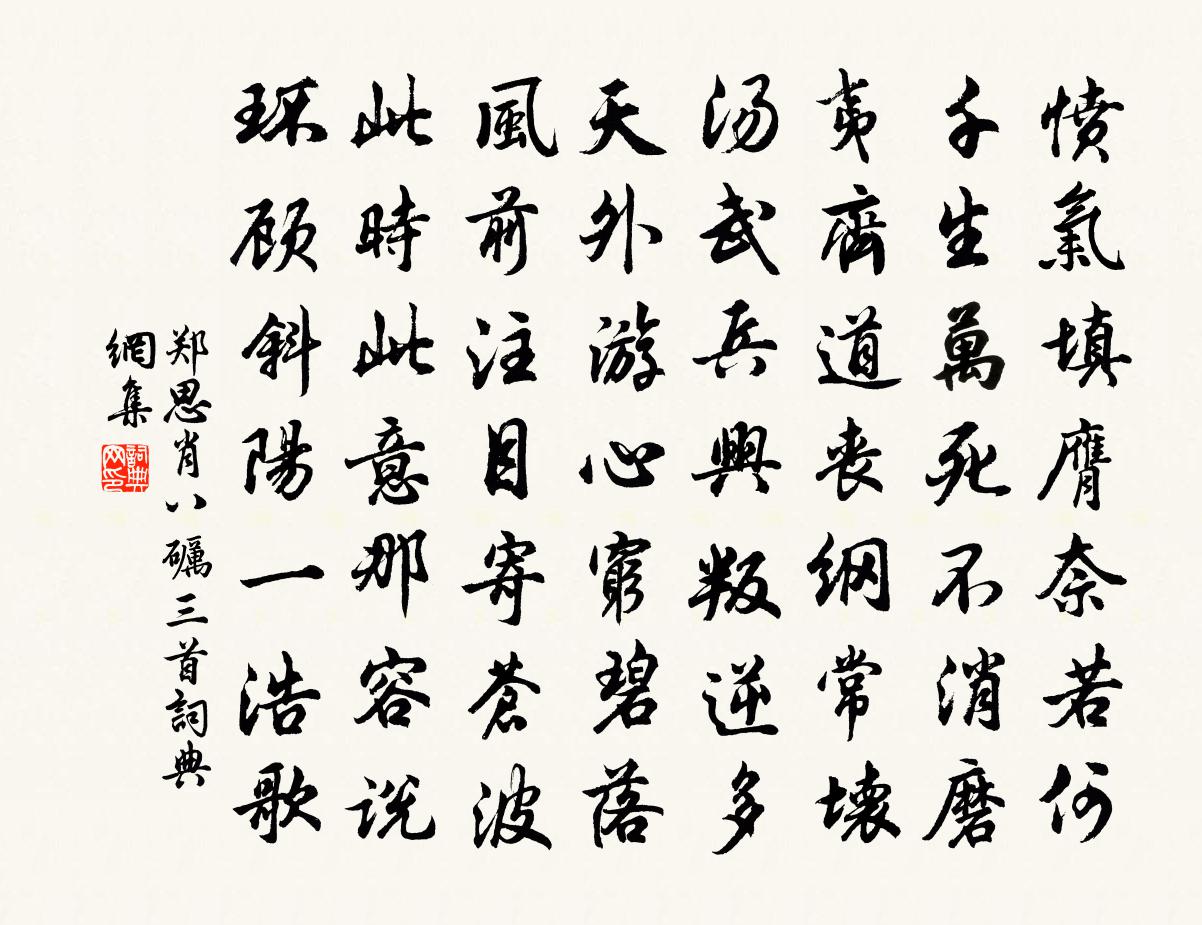 憤氣填膺奈若何
千生萬死不消磨
夷齊道丧綱常壊
汤武兵興叛逆多
天外游心窮碧落
風前注目寄蒼波
此時此意那容説
环顾斜陽一浩歌
郑思肖八礪三首詞典
網集
詞典网印